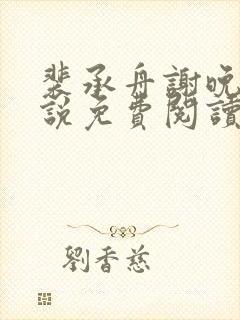 裴承舟謝晚
說免費閱讀
劉香慈